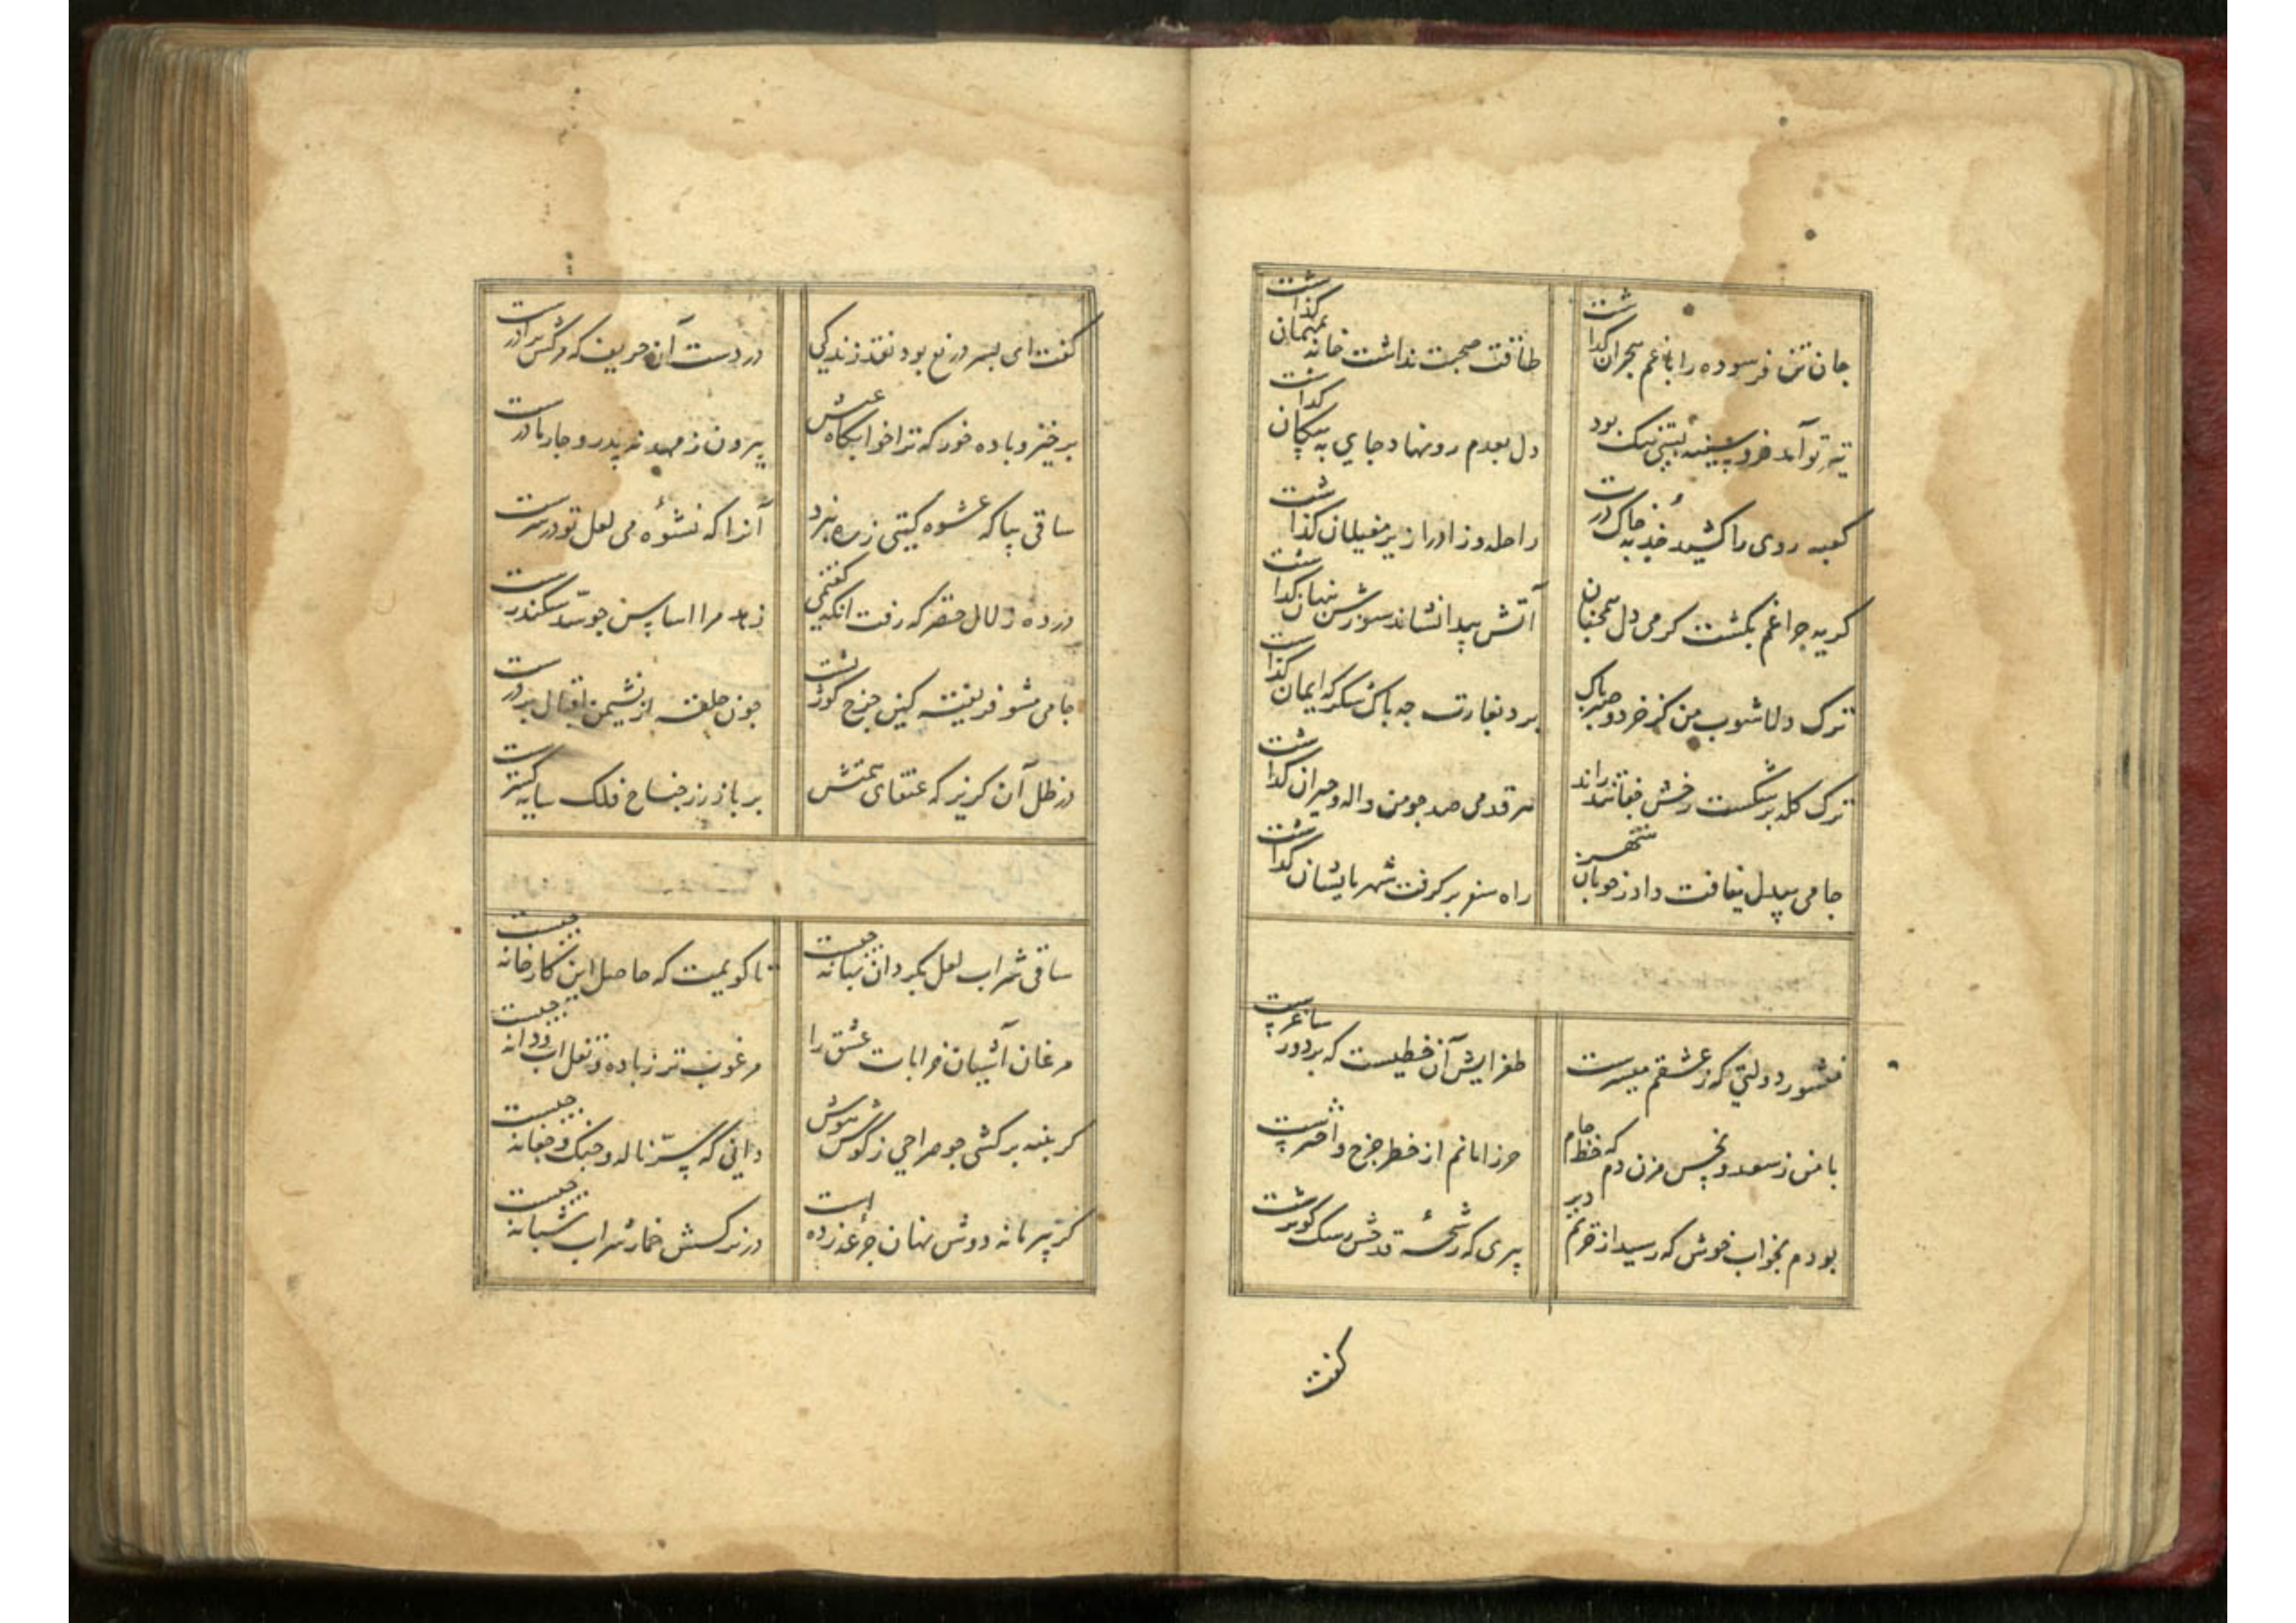 جان تن فرسوده را با غم هجران گذاشت
طاقت صحبت نداشت خانه بمهمان گذاشت
تیر تو آمد فرو سینه بود
دل بعدم رو نهاد جای به پیکان گذاشت
کعبه روی را کشید جذبه خاک درت
راحله و زاد را زیر مغیلان گذاشت
کریه چراغم بکشت کرمی دل همچنان
آتش پیدا نشاند سوزش پنهان گذاشت
ترک دلاشوب من کز خرد و صبر پاک
برد بغارت چه باک شکر که ایمان گذاشت
ترک کله بر شکست رخش جفا تند راند
هر قدمی صد چو من واله و حیران گذاشت
جامی بیدل نیافت داد ز خوبان شهر
راه سفر بر کرفت شهر بایشان گذاشت
منشور دولتی که ز عشقم میسرست
طغرایش آن خطیست که بر دور ساغرست
با من ز سعد و نحس مزن دم که خط جام
حرز امانم از خطر چرخ و اخترست
بودم بخواب خوش که رسید از حریم دیر
پیری که رشحه قدحش رشک کوثرست
کفت
کفت ای پسر دریغ بود نقد زندکی
در دست آن حریف که مرکش برادرست
برخیز و باده خور که ترا خوابکاه عیش
بیرون ز مهد نه پدر و چار مادرست
ساقی بیا که عشوه کیتی ز ره نبرد
آنرا که نشوه می لعل تو در سرست
در ده زلال خضر که رفت انکه کفتمی
مرا اساس چو سد سکندرست
جامی مشو فریفته کین چرخ کوژپشت
چون حلقه از نشیمن اقبال بر درست
در ظل آن کریز که عنقای همتش
بر باز زر جناح فلک سایه کسترست
ساقی شراب لعل بکردان بهانه چیست
تا کویمت که حاصل این کارخانه چیست
مرغان آشیان خرابات عشق را
مرغوب تر ز باده و نقل آب و دانه چیست
کر پنبه بر کشی چو صراحی ز کوش هوش
دانی که سر ناله و چنک و چغانه چیست
کر پیر ما نه دوش نهان جرعه زده است
در نرکسش خمار شراب شبانه چیست